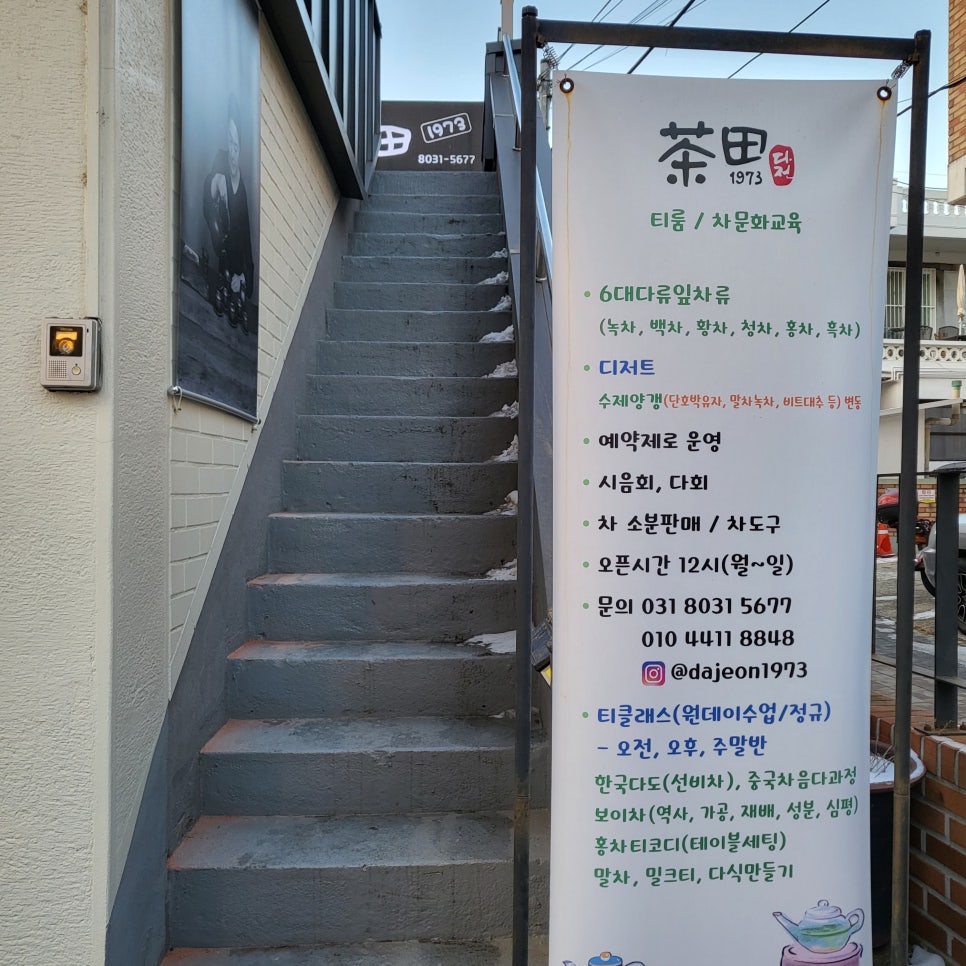 田 1973
8031-5677
茶田 1973 다전
티룸 / 차문화교육
• 6대다류잎차류
(녹차, 백차, 황차, 청차, 홍차, 흑차)
• 디저트
수제양갱(단호박유자, 말차녹차, 비트대추 등) 변동
• 예약제로 운영
• 시음회, 다회
• 차 소분판매 / 차도구
• 오픈시간 12시(월~일)
• 문의 031 8031 5677
010 4411 8848
@dajeon1973
• 티클래스(원데이수업/정규)
- 오전, 오후, 주말반
한국다도(선비차), 중국차음다과정
보이차(역사, 가공, 재배, 성분, 심평)
홍차티코디(테이블세팅)
말차, 밀크티, 다식만들기